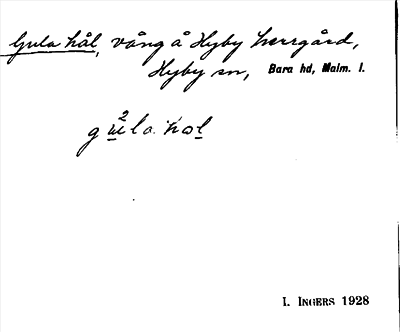 Gula hål, vång å Hyby herrgård,
Hyby sn, Bara hd, Malm. l.
I. INGERS 1928